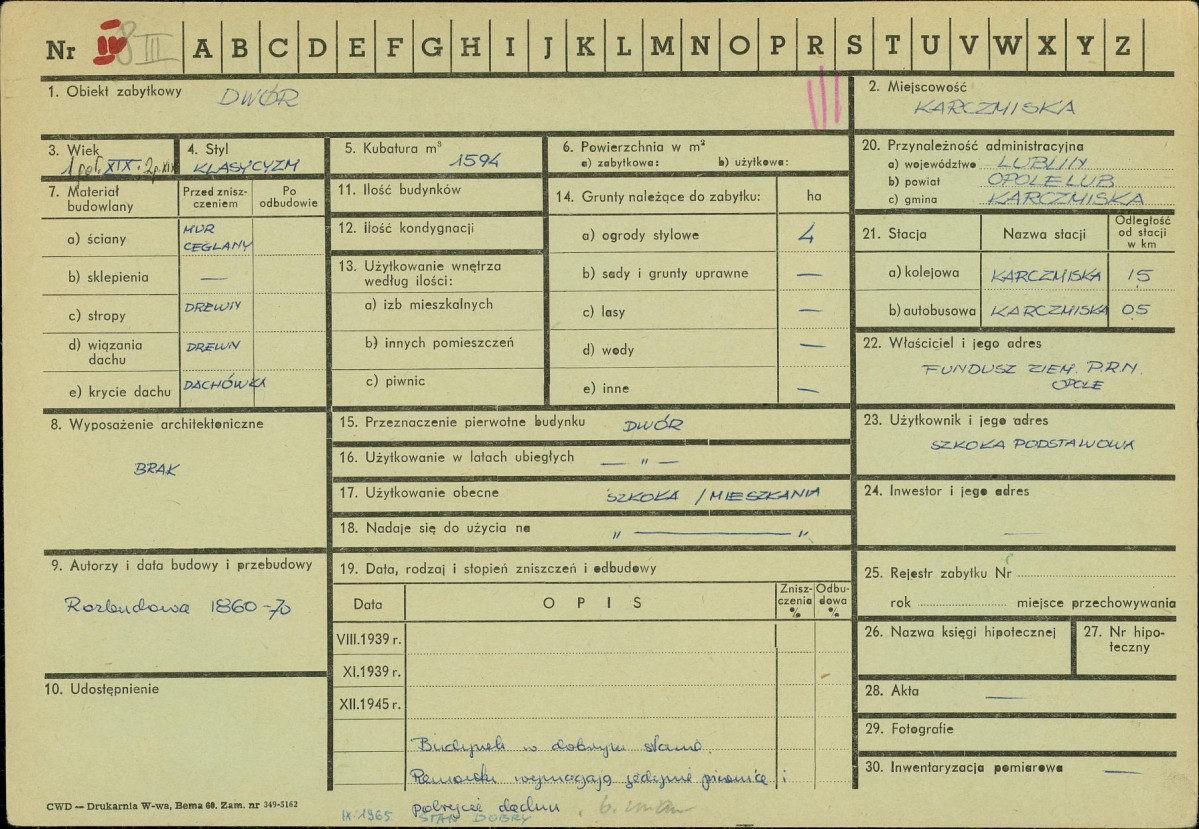 Nr IV 8 III A B C D E F G H I J K L M N O P R S T U V W X Y Z
1. Obiekt zabytkowy DWÓR
2. Miejscowość
KARCZMISKA
3. Wiek
1 poł. XIX. 2 p. XIX
4. Styl
KLASYCYZM
5. Kubatura m³ 1594
6. Powierzchnia w m²
a) zabytkowa: b) użytkowa:
20. Przynależność administracyjna
a) województwo LUBLIN
b) powiat OPOLE LUB
c) gmina KARCZMISKA
7. Materiał budowlany
Przed zniszczeniem
Po odbudowie
a) ściany MUR CEGLANY
b) sklepienia —
c) stropy DREWN
d) wiązania dachu DREWN
e) krycie dachu DACHÓWKA
11. Ilość budynków
12. Ilość kondygnacji
13. Użytkowanie wnętrza według ilości:
a) izb mieszkalnych
b) innych pomieszczeń
c) piwnic
14. Grunty należące do zabytku: ha
a) ogrody stylowe 4
b) sady i grunty uprawne —
c) lasy —
d) wody —
e) inne —
21. Stacja Nazwa stacji Odległość od stacji w km
a) kolejowa KARCZMISKA 1,5
b) autobusowa KARCZMISKA 0,5
22. Właściciel i jego adres
FUNDUSZ ZIEM. P.R.N.
OPOLE
8. Wyposażenie architektoniczne
BRAK
15. Przeznaczenie pierwotne budynku DWÓR
16. Użytkowanie w latach ubiegłych — " —
17. Użytkowanie obecne SZKOŁA / MIESZKANIA
18. Nadaje się do użycia na " — "
23. Użytkownik i jego adres
SZKOŁA PODSTAWOWA
24. Inwestor i jego adres
—
9. Autorzy i data budowy i przebudowy
Rozbudowa 1860-70
10. Udostępnienie
19. Data, rodzaj i stopień zniszczeń i odbudowy
Data OPIS Zniszczenia % Odbudowa %
VIII.1939 r.
XI.1939 r.
XII.1945 r.
Budynek w dobrym stanie.
Remontu wymagają jedynie piwnice i
pokrycie dachu.
IX.1965 STAN DOBRY
25. Rejestr zabytku Nr
rok miejsce przechowywania
26. Nazwa księgi hipotecznej
27. Nr hipoteczny
28. Akta —
29. Fotografie
30. Inwentaryzacja pomiarowa —
CWD — Drukarnia W-wa, Bema 60. Zam. nr 349-5162